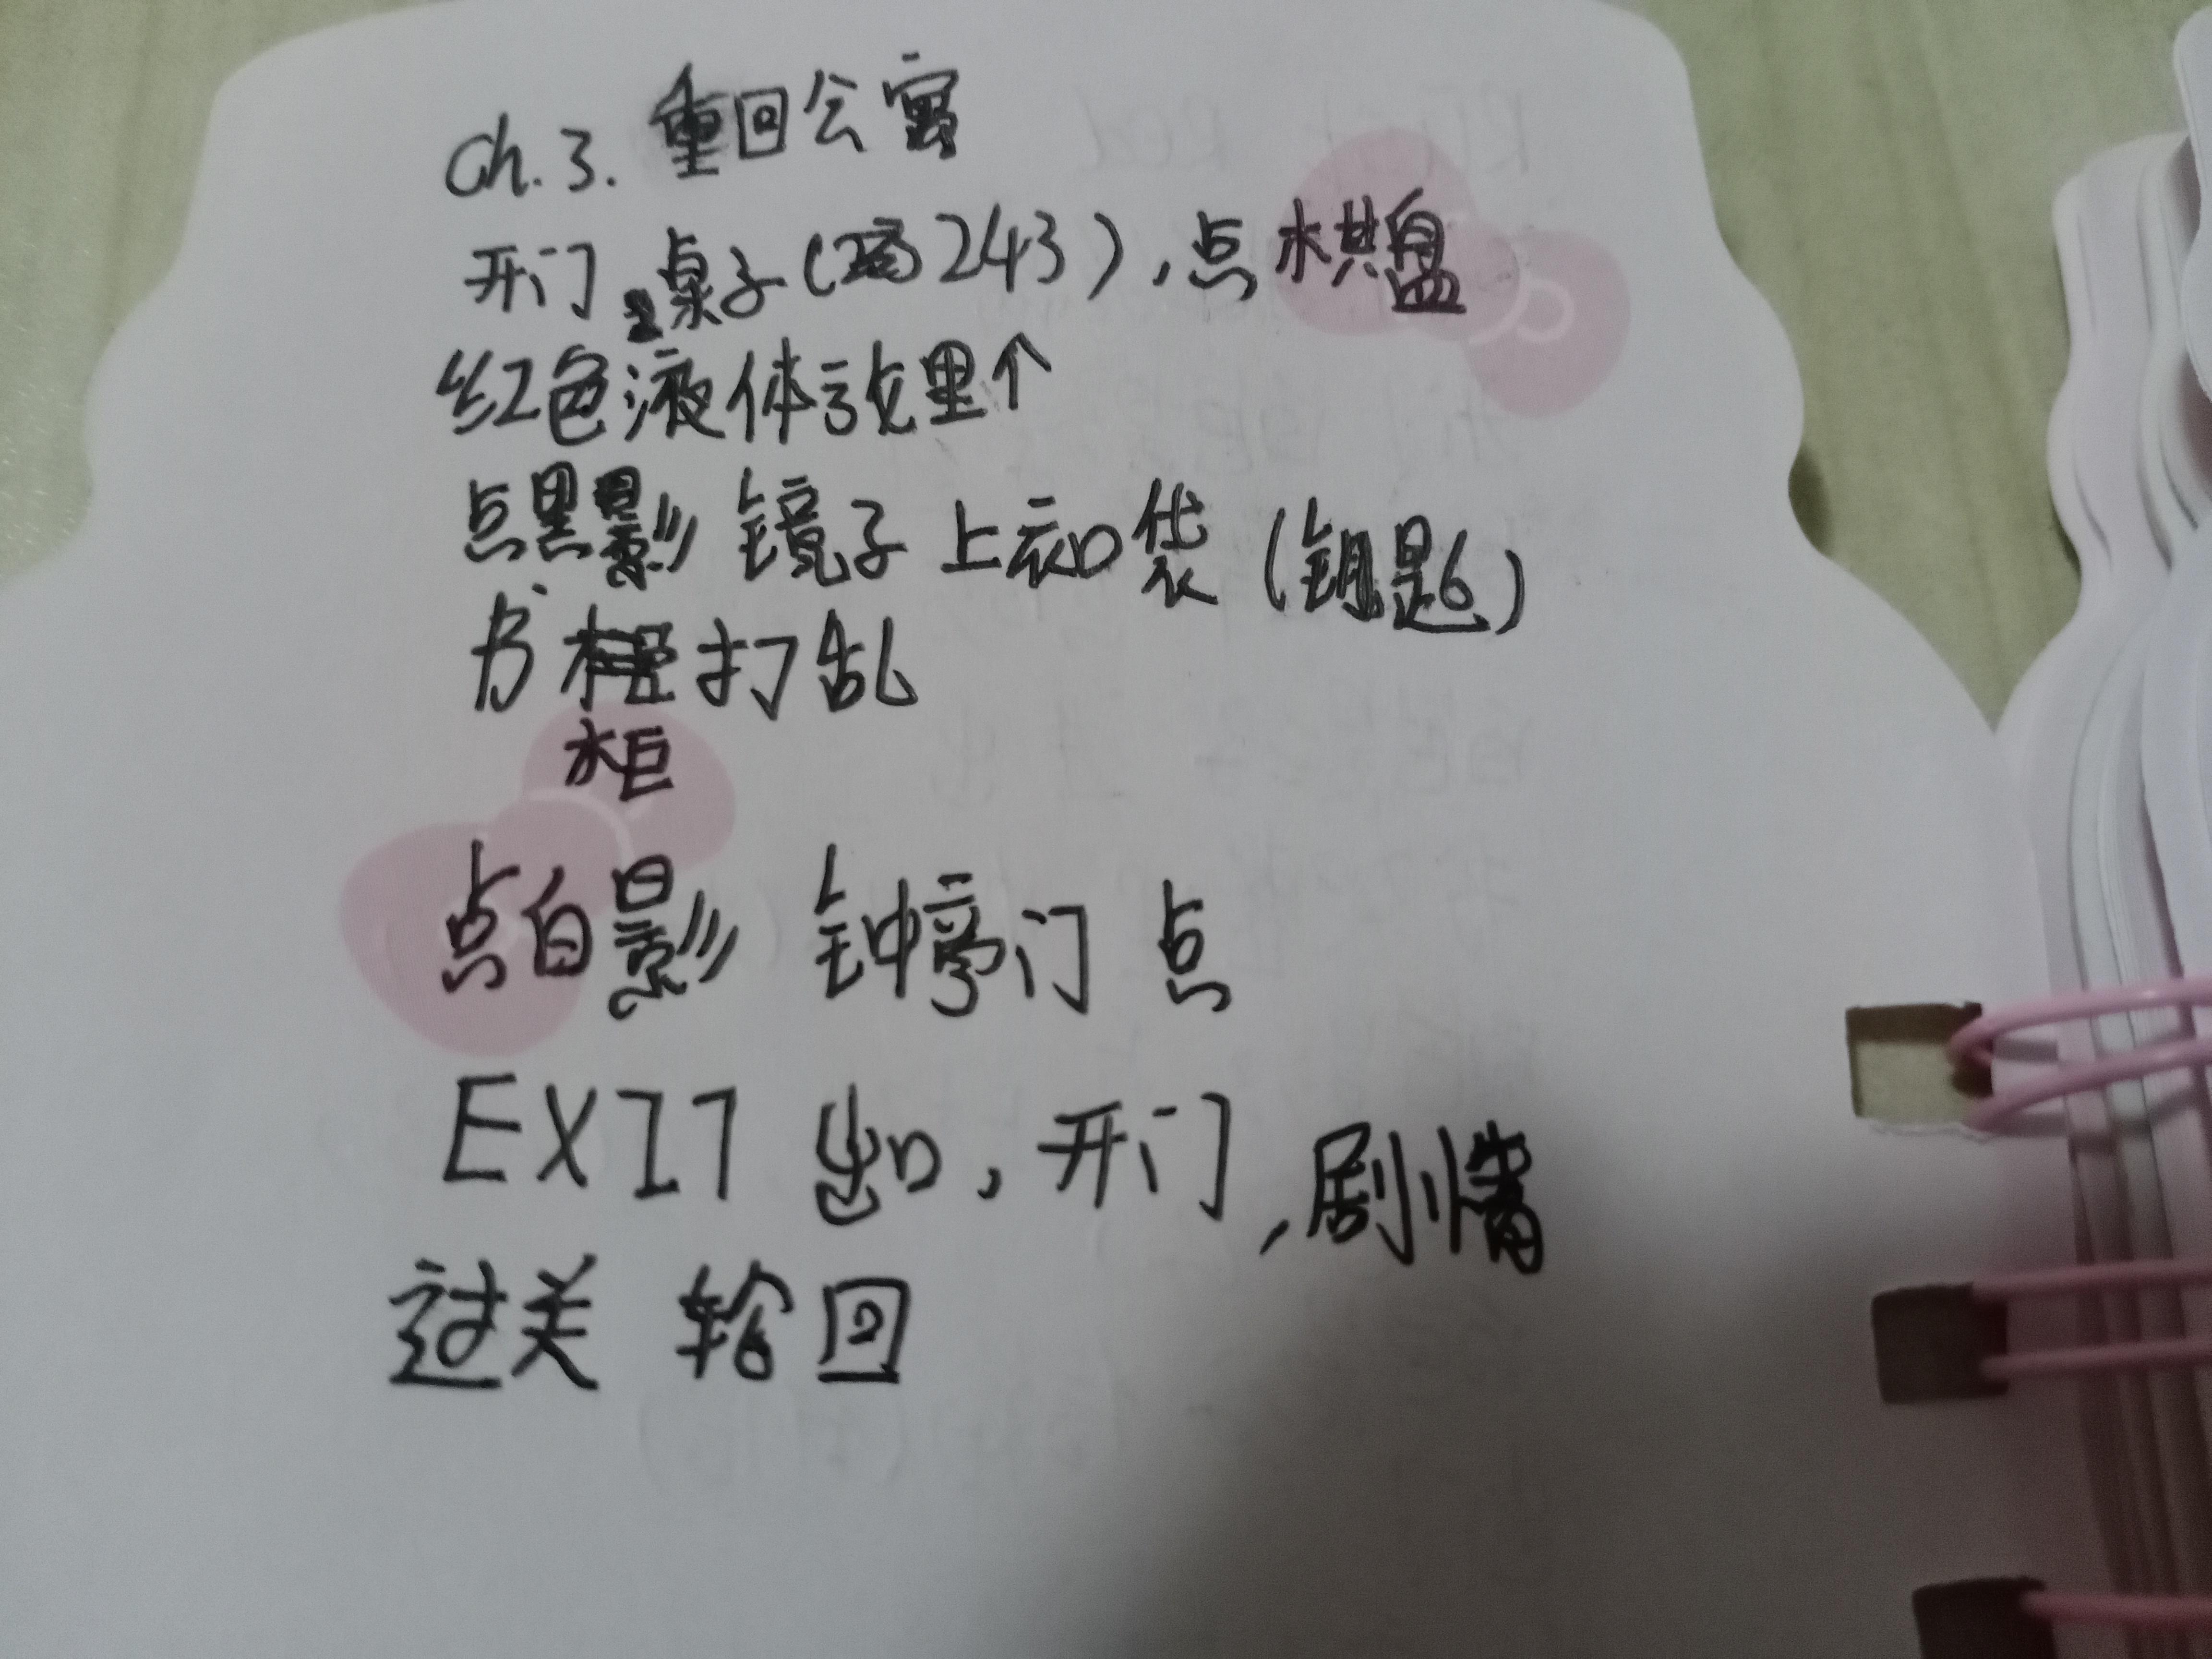 Ch.3. 重回公寓
开门 桌子(243),点棋盘
红色液体放里个
点黑影 镜子 上衣口袋(钥匙)
书柜打乱
柜
点白影 钟亭门 点
EXIT 出口,开门,剧情
过关 轮回